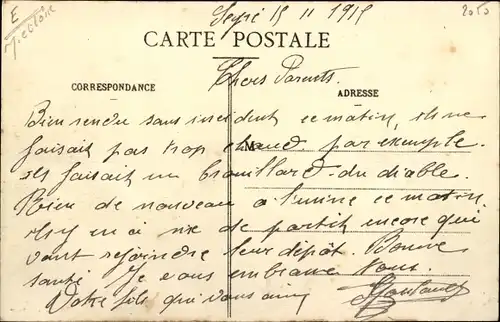 E
15 11 1915
2050
CARTE POSTALE
Chers Parents.
CORRESPONDANCE
ADRESSE
Bien rendu sans incident ce matin, il ne
faisait pas trop chaud par exemple.
M
il faisait un brouillard du diable.
Rien de nouveau a l'usine ce matin.
Il y en a de partit encore qui
vont rejoindre leur dépôt. Bonne
santé Je vous embrasse tous.
Votre fils qui vous aime